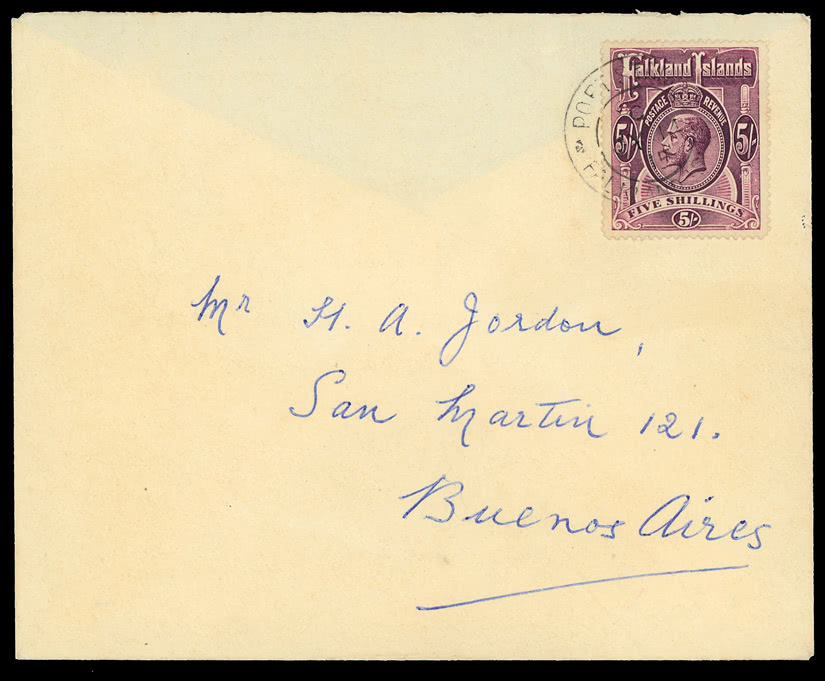 Falkland Islands
POSTAGE REVENUE
5/- 5/-
FIVE SHILLINGS
5/-
Mr H. A. Jordon,
San Martin 121.
Buenos Aires